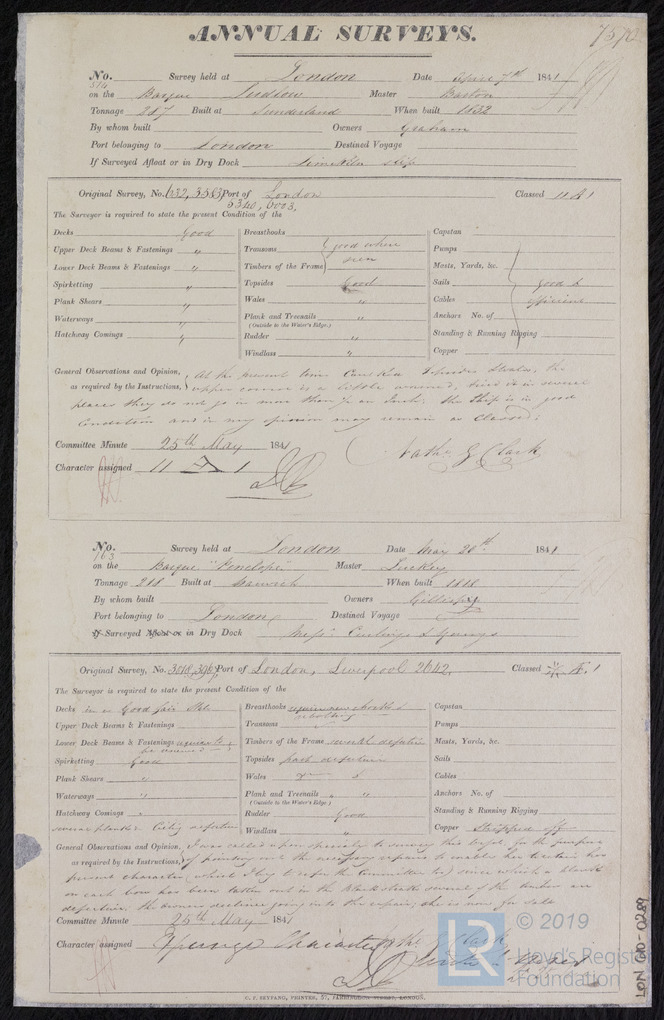 ANNUAL SURVEYS.
No. 514 Survey held at London Date April 7th 1841
on the Barque Ludlow Master Barton
Tonnage 287 Built at Sunderland When built 1832
By whom built Owners Graham
Port belonging to London Destined Voyage
If Surveyed Afloat or in Dry Dock ship
Original Survey, No. Port of London Classed 11 A 1
5340, 6003,
The Surveyor is required to state the present Condition of the
Decks Good Breasthooks Capstan
Upper Deck Beams & Fastenings " Transoms Good where Pumps
Lower Deck Beams & Fastenings " Timbers of the Frame seen Masts, Yards, &c.
Spirketting " Topsides Good Sails Good &
Plank Shears " Wales " Cables efficient
Waterways " Plank and Treenails " Anchors No. of
(Outside to the Water's Edge.)
Hatchway Comings " Rudder " Standing & Running Rigging
Windlass " Copper
General Observations and Opinion, At the present time Topsides the
as required by the Instructions, upper course is a little tried it in several
places they do not go in more than an Inch: the Ship is in good
Condition and in my opinion may remain as Classed:
Committee Minute 25th May 1841
Character assigned 11 A 1
Clark
No. 163 Survey held at London Date Mar 20th 1841
on the Barque "Penelope" Master
Tonnage 218 Built at Harwich When built 1818
By whom built Owners Gillespy
Port belonging to London Destined Voyage
If Surveyed Afloat or in Dry Dock Messrs Curlings & Youngs
Original Survey, No. Port of London, Liverpool 2642, Classed 1
The Surveyor is required to state the present Condition of the
Decks in a Good Breasthooks Capstan
Upper Deck Beams & Fastenings Transoms Pumps
Lower Deck Beams & Fastenings Timbers of the Frame defective Masts, Yards, &c.
Spirketting Good Topsides part defective Sails
Plank Shears " Wales Cables
Waterways " Plank and Treenails " Anchors No. of
(Outside to the Water's Edge.)
Hatchway Comings Rudder Good Standing & Running Rigging
several planks Ceiling defective Windlass " Copper Stripped off
General Observations and Opinion, I was called upon specially to survey this vessel for the purpose
as required by the Instructions, of pointing out the necessary repairs to enable her to retain her
present character, (which I beg to refer the Committee to) since which a plank
on each bow has been taken out in the Blackstrake several of the timbers are
defective. the owners decline going into the repair; she is now for sale
Committee Minute 25th May 1841
Character assigned Expunge Character
C. F. SEYFANG, PRINTER, 57, FARRINGDON STREET, LONDON.
LON 610-0289
LR
© 2019
Lloyd's Register
Foundation